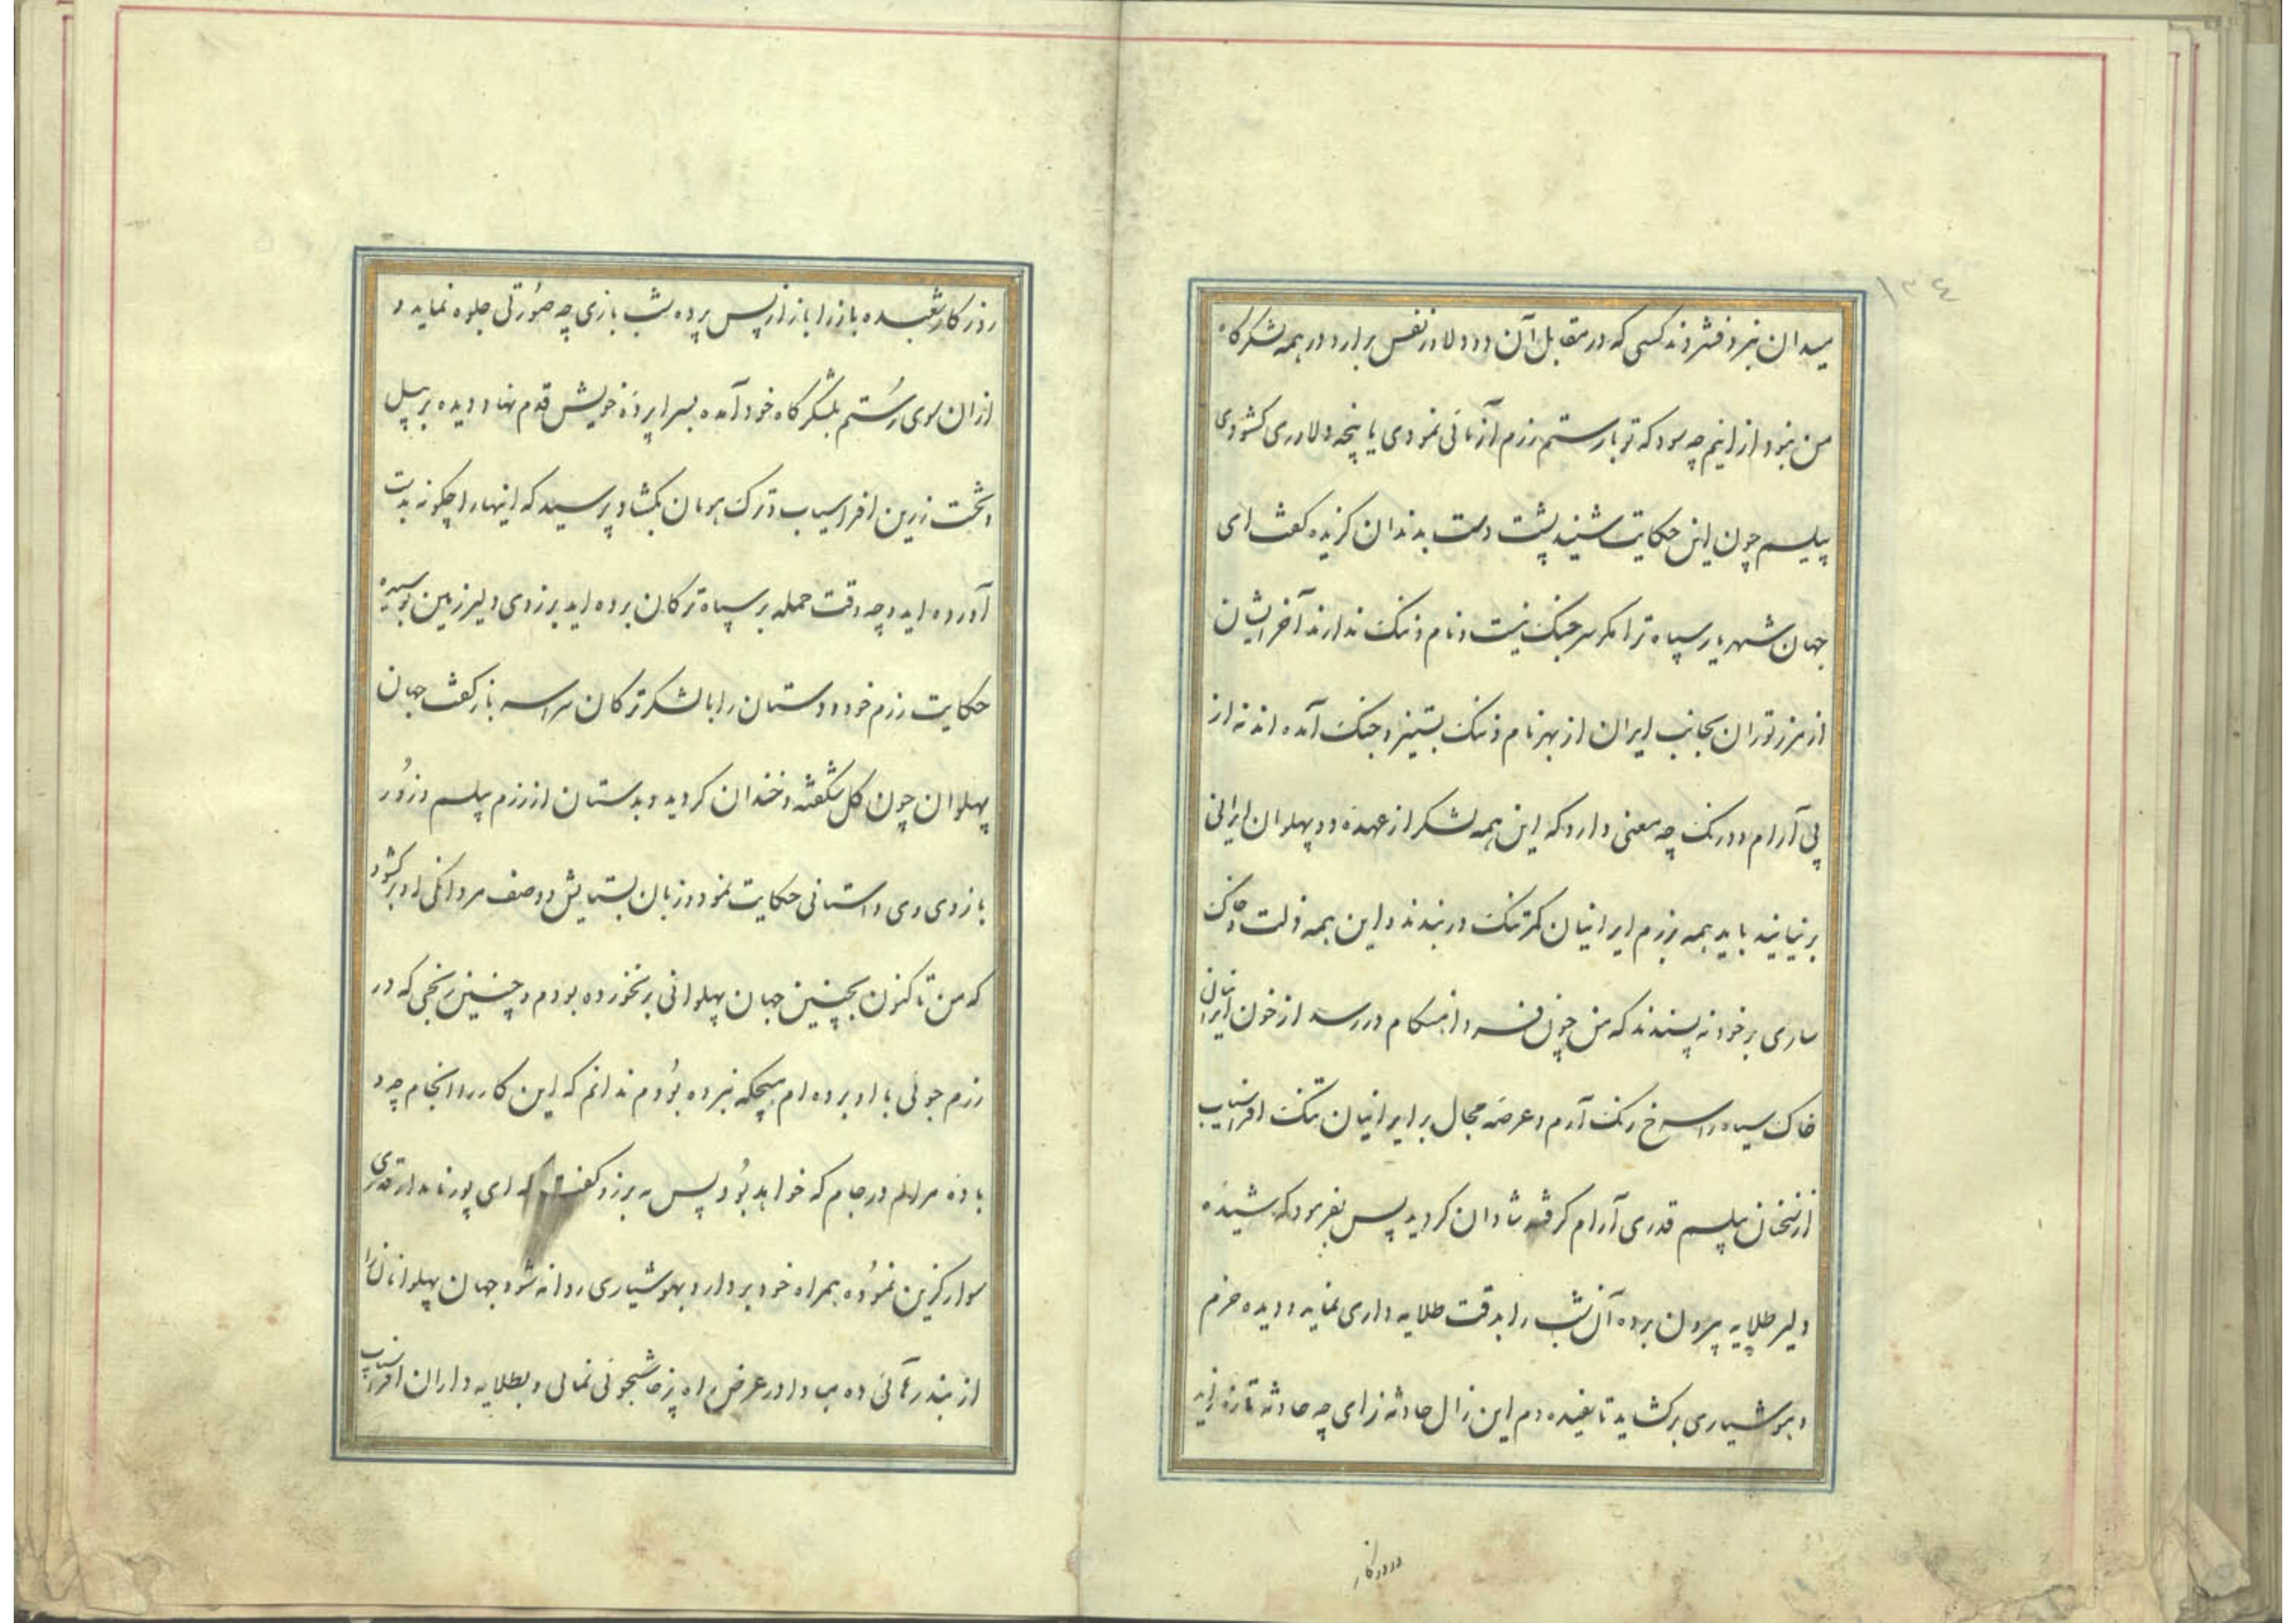 ۱۳٤
میدان نبرد فشردند کسی که در مقابل آن دو دلاور نفس برارد در همه لشکرگاه
من نبود از اینم چه سود که تو با رستم رزم آزمائی نمودی یا پنجه دلاوری کشودی
پیلسم چون این حکایت شنید پشت دست بدندان گزیده گفت ای
جهان شهریار سپاه ترا مگر سر جنگ نیست و نام و ننگ ندارند آخر ایشان
از مرز توران بجانب ایران از بهر نام و ننگ بستیز و جنگ آمده اند نه از
پی آرام و درنگ چه معنی دارد که این همه لشکر از عهده دو پهلوان ایرانی
بر نیایند باید همه برزم ایرانیان کمر تنگ در بندند و این همه ذلت و
ساری بر خود نه پسندند که من چون فردا هنگام در رسد از خون ایرانیان
خاک سیاه را سرخ رنگ آرم و عرصه مجال بر ایرانیان تنگ افراسیاب
از سخنان پیلسم قدری آرام گرفته شادان گردید پس بفرمود که شیده
دلیر طلایه بیرون برده آن شب را بدقت طلایه داری نماید و دیده حزم
و هوشیاری برگشاید تا سفیده دم این زال حادثه زای چه حادثه تازه زاید
و روزگار
روزکار شعبده باز را باز از پس پرده شب بازی چه صورتی جلوه نماید و
از ان سوی رستم بلشکرگاه خود آمده بسراپرده خویش قدم نهاد دیده بر پیل
و تخت زرین افراسیاب و ترک هومان بگشاد پرسید که اینها را چگونه بدست
آورده اید و چه وقت حمله بر سپاه ترکان برده اید برزوی دلیر زمین بوسیده
حکایت رزم خود و دستان را با لشکر ترکان سراسر باز گفت جهان
پهلوان چون گل شگفته و خندان گردید و بدستان از رزم پیلسم و زور
بازوی وی داستانی حکایت نمود و زبان بستایش و وصف مردانگی او برگشود
که من تا کنون بچنین جهان پهلوانی بر نخورده بودم و چنین رنجی که در
رزم جوئی با او برده ام هیچگه نبرده بودم ندانم که این کار را انجام چه و
باده مرادم در جام که خواهد بود پس به برزو گفت که ای پور نامدار قدری
سوار گزین نموده همراه خود بردار و بهوشیاری روانه شو و جهان پهلوانان را
از بند رهائی ده مبادا در عرض راه پرخاشجوئی نمائی و بطلایه داران افراسیاب